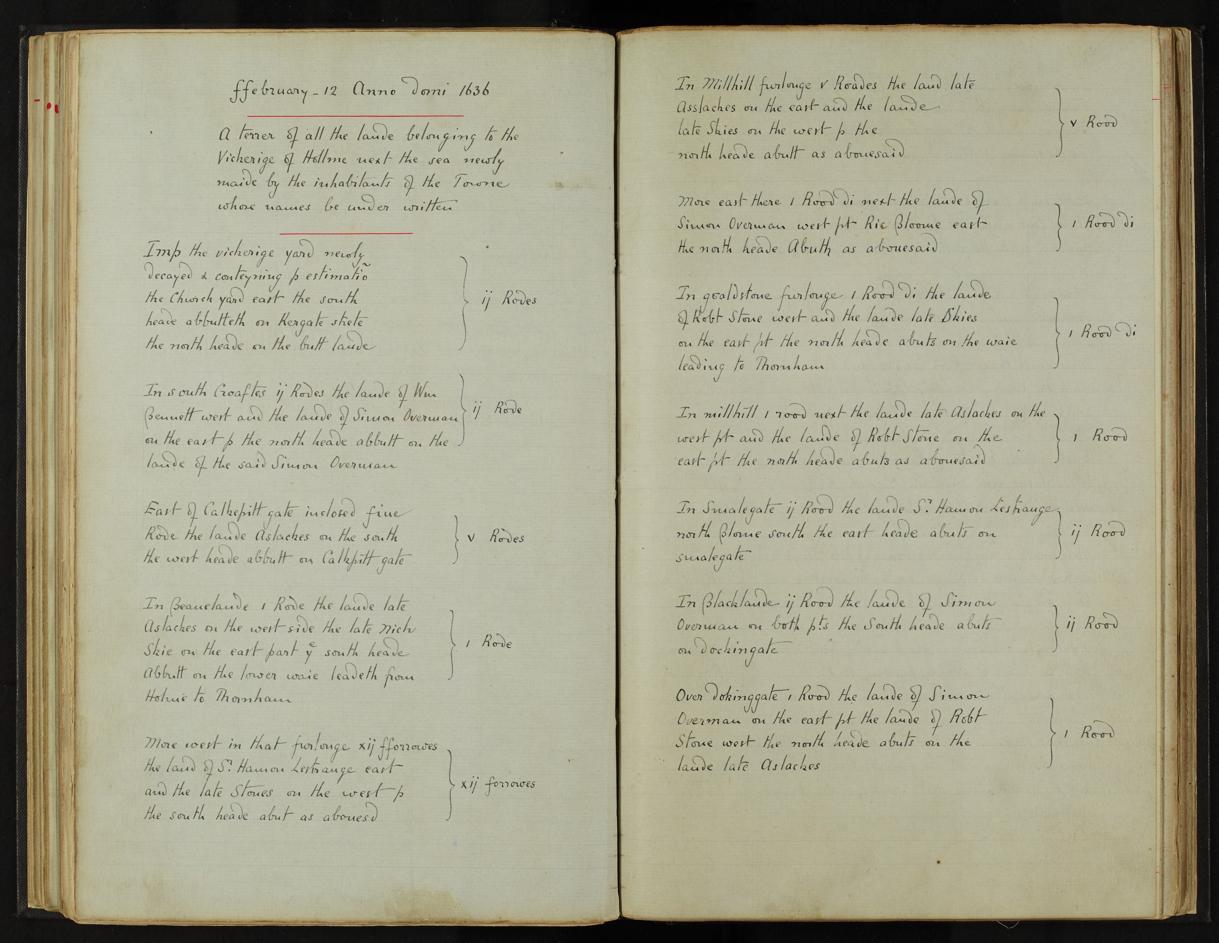 ffebruary - 12 Anno domi 1636
A terrer of all the lande belonging to the
Vicherige of Hollme next the sea newly
maide by the inhabitants of the Towne
whose names be under written
Imp the vicherige yard newly
decayed & conteyning p estimatiõ
the Church yard east the south
heade abbutteth on Kergate strete
the north heade on the butt lande
ij Rodes
In south Croaftes ij Rodes the lande of Wm
Bennett west and the lande of Simon Overman
on the east p the north heade abbutt on the
lande of the said Simon Overman
ij Rode
East of Calkepitt gate inclosed fiue
Rode the lande Aslackes on the south
the west heade abbutt on Calkpitt gate
v Rodes
In Beauelande 1 Rode the lande late
Aslackes on the west side the late Nich
Skie on the east part yᵉ south heade
Abbutt on the lower waie leadeth from
Holme to Thornham
1 Rode
More west in that furlonge xij fforrowes
the land of Sʳ Hamon Lestrange east
and the late Stones on the west p
the south heade abut as abouesd
xij forrowes
In Millhill furlonge v Roades the land late
Asslackes on the east and the lande
late Skies on the west p the
north heade abutt as abouesaid
v Rood
More east there 1 Rood di next the lande of
Simon Overman west pt Ric Bloome east
the north heade Abuth as abouesaid
1 Rood di
In goaldstone furlonge 1 Rood di the lande
of Robt Stone west and the lande late Skies
on the east pt the north heade abuts on the waie
leading to Thornham
1 Rood di
In millhill 1 rood next the lande late Aslackes on the
west pt and the lande of Robt Stone on the
east pt the north heade abuts as abouesaid
1 Rood
In Smalegate ij Rood the lande Sʳ Hamon Lestrange
north Blome south the east heade abuts on
smalegate
ij Rood
In Blacklande ij Rood the lande of Simon
Overman on both pts the South heade abuts
on dockingate
ij Rood
Over Dokinggate 1 Rood the lande of Simon
Overman on the east pt the lande of Robt
Stone west the north heade abuts on the
lande late Aslackes
1 Rood